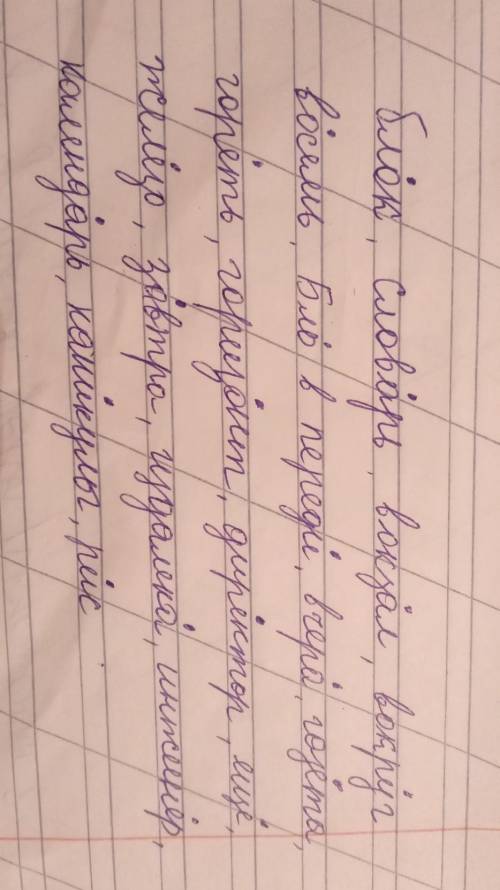 блок, словарь, вокзал, вокруг
восемь, в переди, вчера, газета,
гореть, горизонт, директор, ещё,
желецо, завтра, издалека, инженер,
календарь, каникулы, рейс